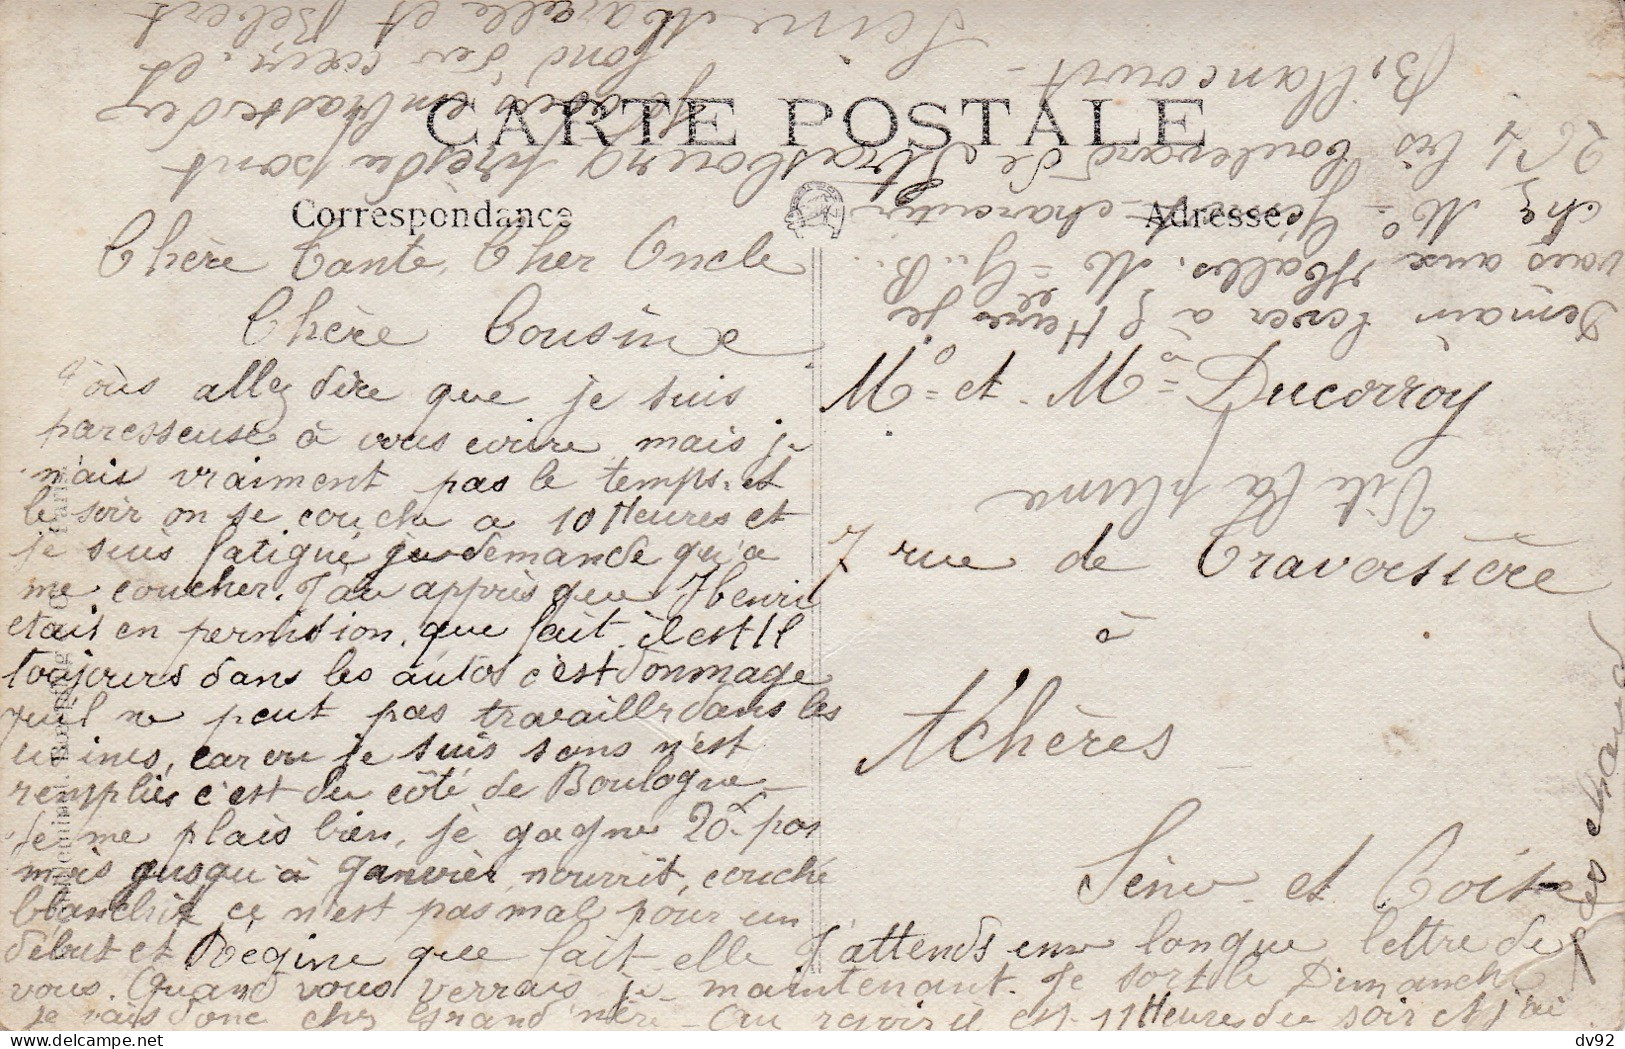 CARTE POSTALE
Correspondance
Adresse
Chère Tante, Cher Oncle
Chère Cousine
Vous allez dire que je suis
paresseuse à vous écrire mais je
n'ais vraiment pas le temps. et
le soir on se couche a 10 Heures et
je suis fatigué je demande qu'a
me coucher. J'ai apprès que Henri
etait en permission, que fait il est il
toujours dans les autos c'est dommage
qu'il ne peut pas travailler dans les
usines, car ou je suis sons n'est
remplies c'est du côté de Boulogne
Je me plais bien, je gagne 20f par
mois jusqu'à Janvier nourrit, couché
blanchit ce n'est pas mal pour un
début et Régine que fait elle J'attends une longue lettre de
vous. Quand vous verrais je maintenant. Je sort le Dimanche
je vais donc chez Grand'mère - Au revoir il est 11 Heures du soir et j'ai
les chaud
Demain lever à 5 Heures je
vais aux Halles. M - G. B.
chez Mr charcutier
264 bis boulevard de Strasbourg près du pont
Billancourt
Seine
embrasse du
fond du cœur. et
Marcelle et Bébert
Mr et Me Ducorroy
Vite la plume
7 rue de Traversière
à
Achères
Seine et Oise
dv92